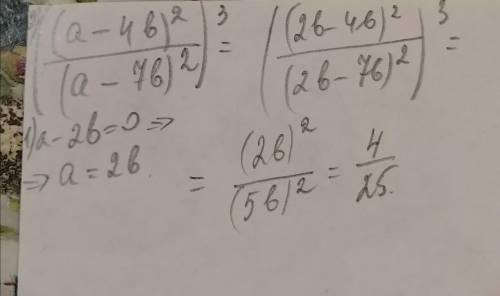 ((a - 4b)² / (a - 7b)²)³ = ((2b - 4b)² / (2b - 7b)²)³ =
1) a - 2b = 0 ⇒
⇒ a = 2b.
= (2b)² / (5b)² = 4 / 25.